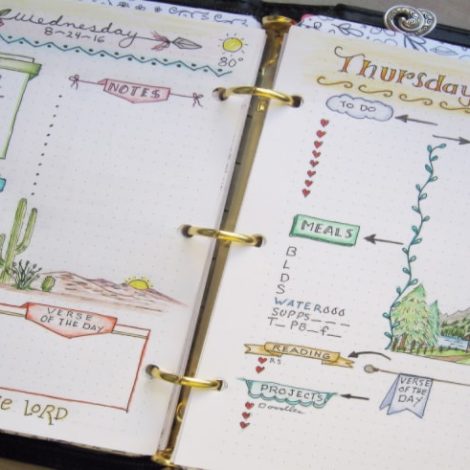 Wednesday
8-24-16
80°
NOTES
VERSE
OF THE DAY
LORD
Thursday
TO DO
MEALS
B
L
D
S
WATER
SUPPS
T_ PB_f_
READING
RS
PROJECTS
Doodles
VERSE
OF THE
DAY